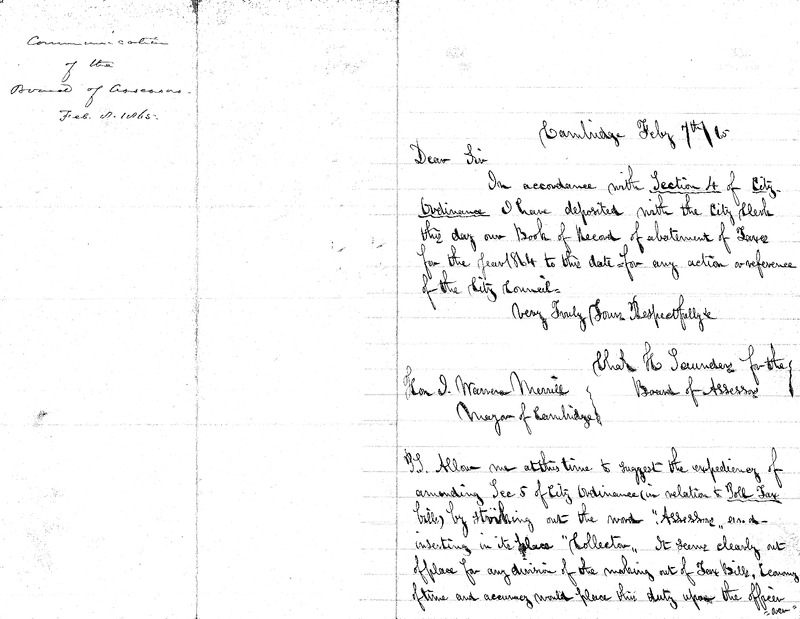 Communication
of the
Board of Assessors.
Feb. 8. 1865.
Cambridge Feby 7th/65
Dear Sir
In accordance with Section 4 of City
Ordinance I have deposited with the City Clerk
this day our Book of Record of abatement of Taxes
for the Year 1864 to this date = for any action or reference
of the City Council =
Very Truly Yours Respectfully &c
Chas H Saunders for the
Board of Assessors
Hon J. Warren Merrill
Mayor of Cambridge
P.S. Allow me at this time to suggest the expediency of
amending Sec 5 of City Ordinance (in relation to Poll Tax
bills) by striking out the word "Assessors" and
inserting in its place "Collector" It seems clearly out
of place for any division of the making out of Tax Bills, Economy
of time and accuracy would place this duty upon the officer
"over"